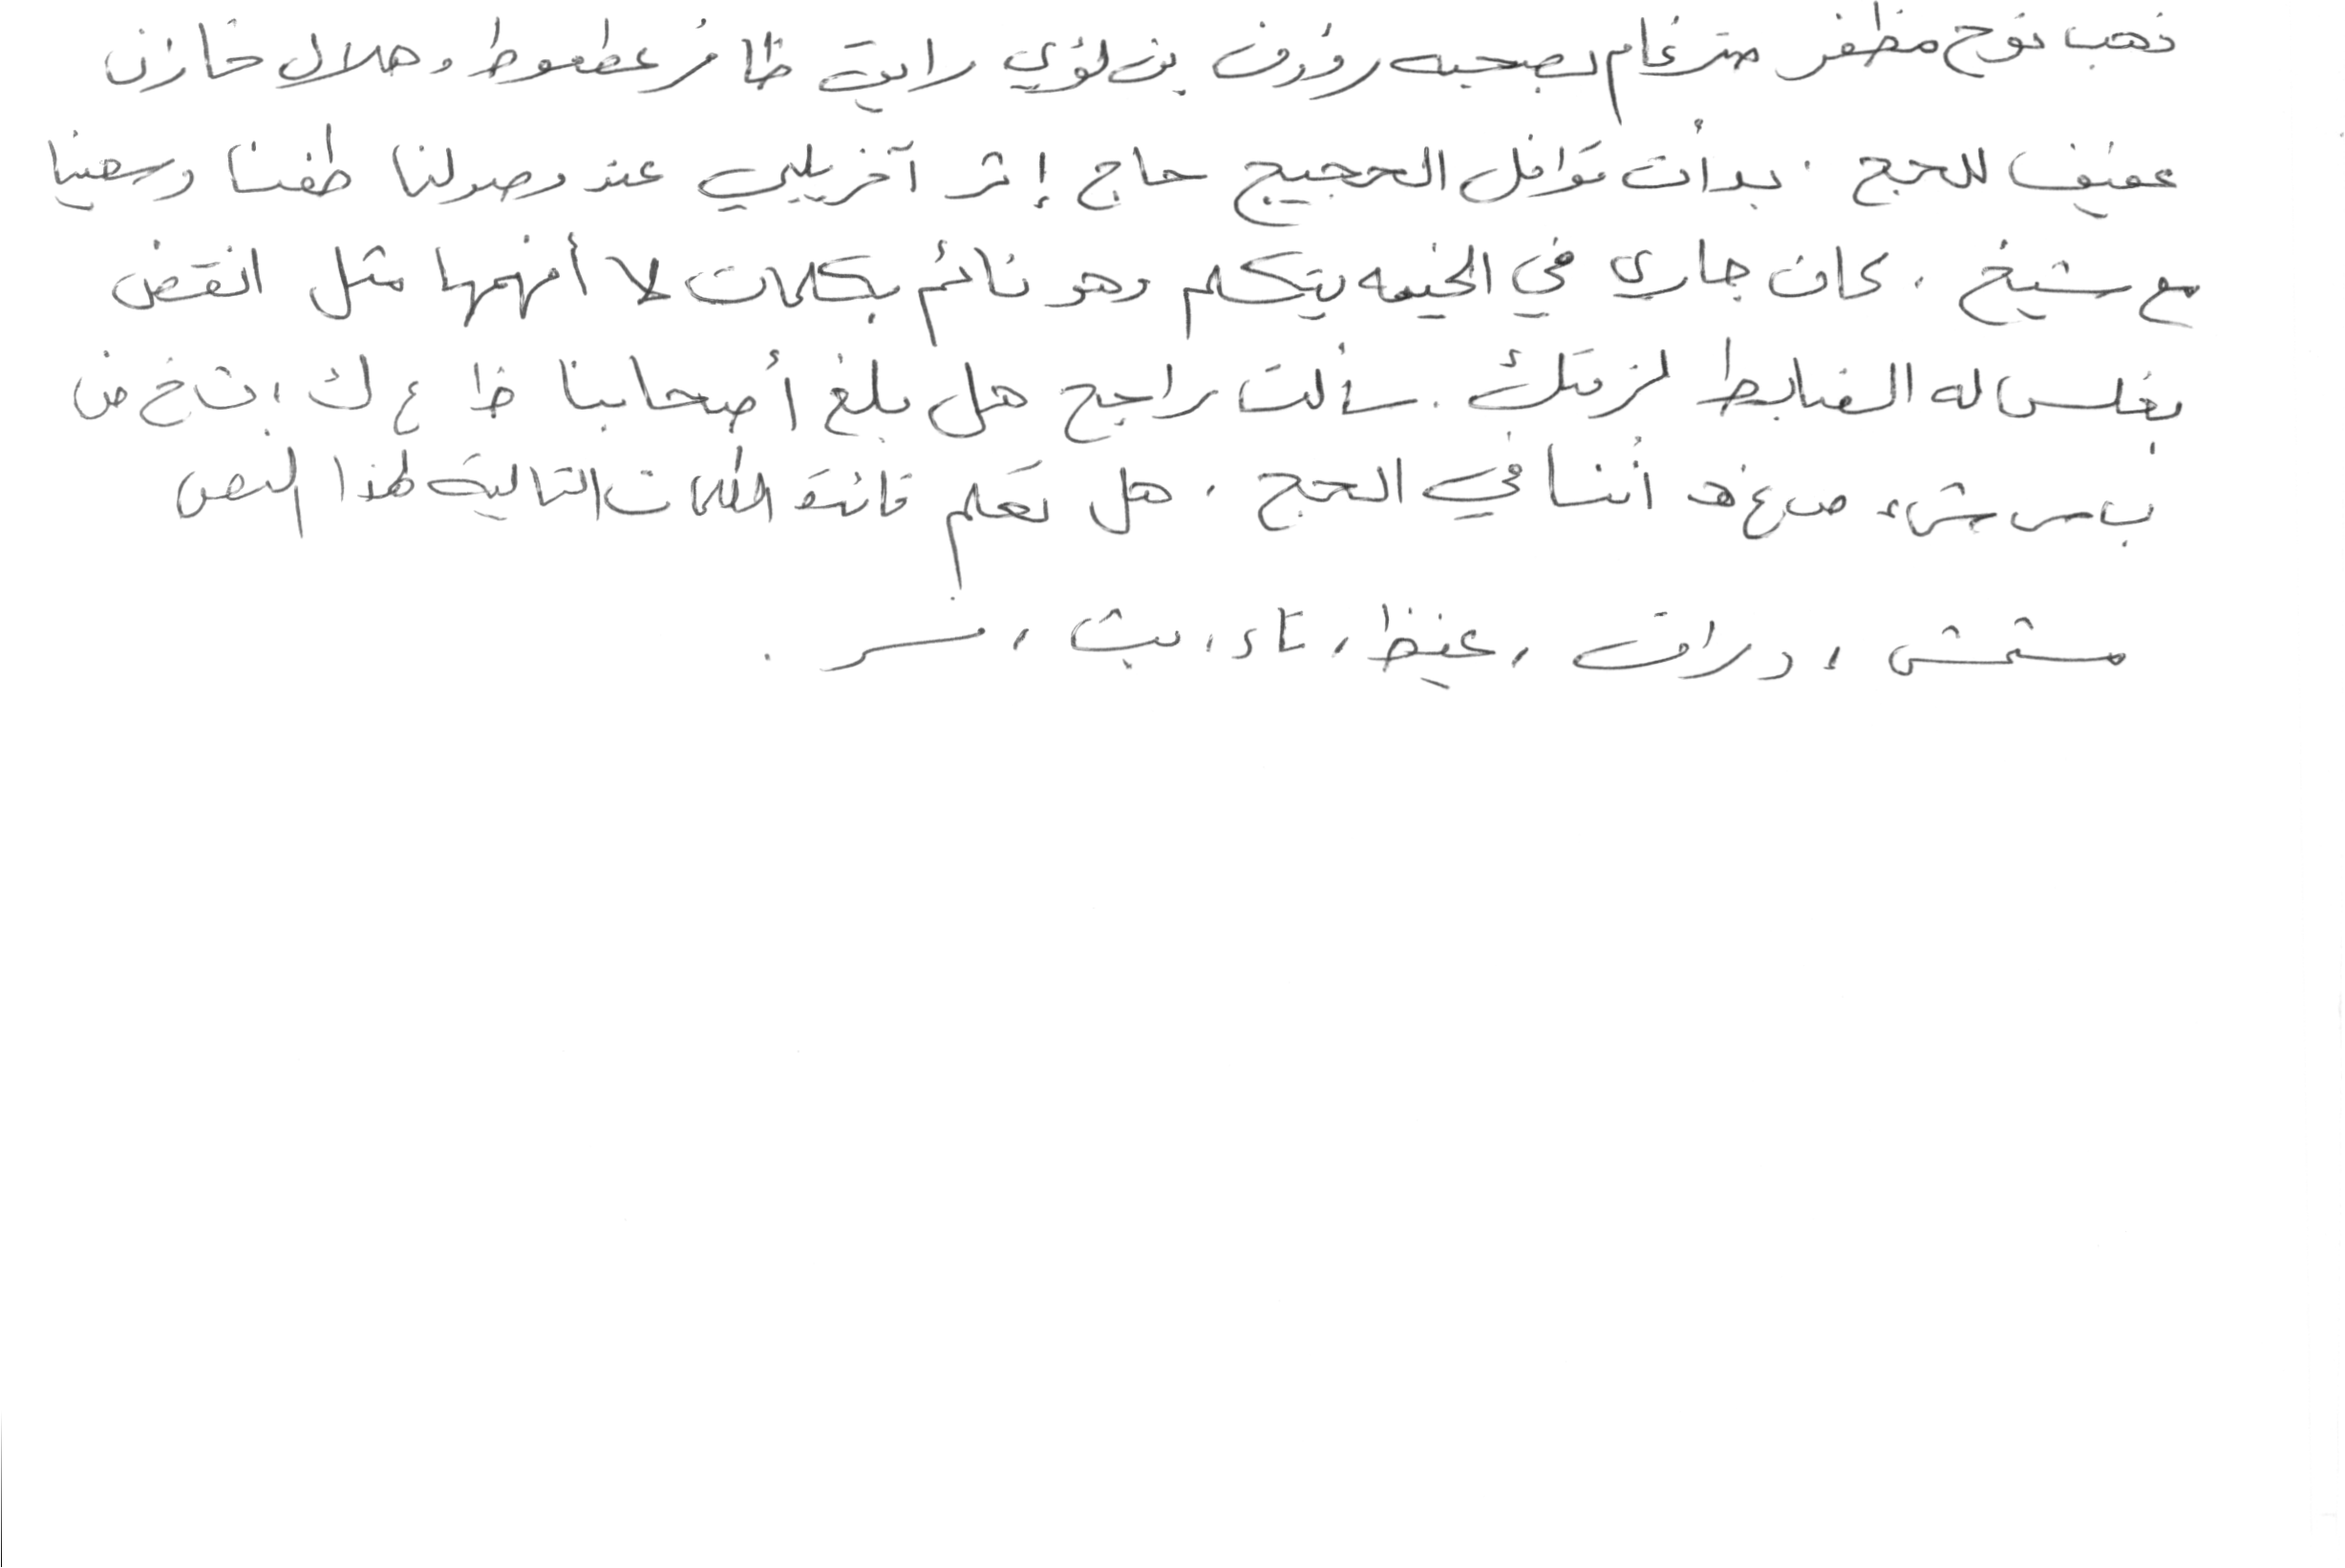 ذهب نوح مظفر ضرغام بصحبه رؤوف بن لؤي راية ظافر عطعوط وهلال خازن
عفيف للحج . بدأت قوافل الحجيج حاج إثر آخر يلبي عند وصولنا طفنا وسعينا
مع شيخ . كان جاري في الخيمه يتكلم وهو نائم بكلمات لا أفهمها مثل انقض
بغلس له الضابط لزمتك . سألت راجح هل بلغ أصحابنا ظ ع ك ، ث خ ض
ب س ش ء ص غ هـ أننا في الحج . هل تعلم قائمة الكلمات التالية لهذا النص
مشمش ، دراق ، غيظ ، تاء ، بث ، نسر .